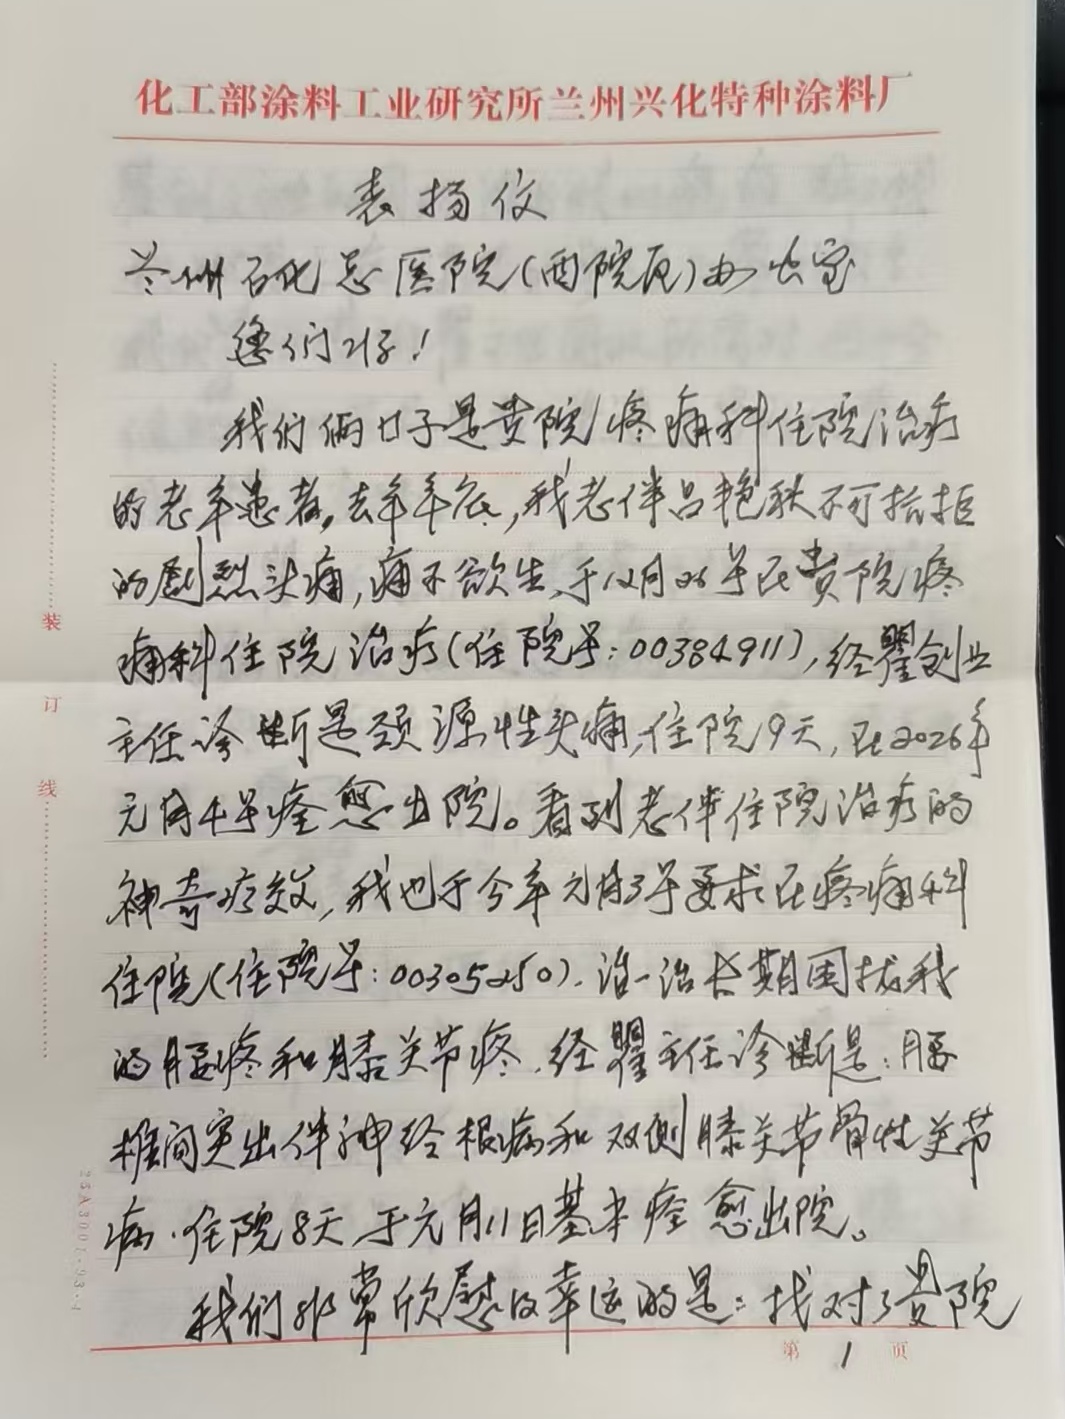 化工部涂料工业研究所兰州兴化特种涂料厂
表扬信
兰州石化总医院(西院区)办公室
您们好!
我们俩口子是贵院疼痛科住院治疗
的老年患者,去年年底,我老伴吕艳秋不可抗拒
的剧烈头痛,痛不欲生,于12月26号在贵院疼
痛科住院治疗(住院号:00384911),经瞿创业
主任诊断是颈源性头痛,住院9天,在2026年
元月4号痊愈出院。看到老伴住院治疗的
神奇疗效,我也于今年元月3号要求在疼痛科
住院(住院号:00305250).治一治长期困扰我
的腰疼和膝关节疼.经瞿主任诊断是:腰
椎间突出伴神经根病和双侧膝关节骨性关节
病.住院8天于元月11日基本痊愈出院。
我们非常欣慰及幸运的是:找对了贵院
第1页
装
订
线